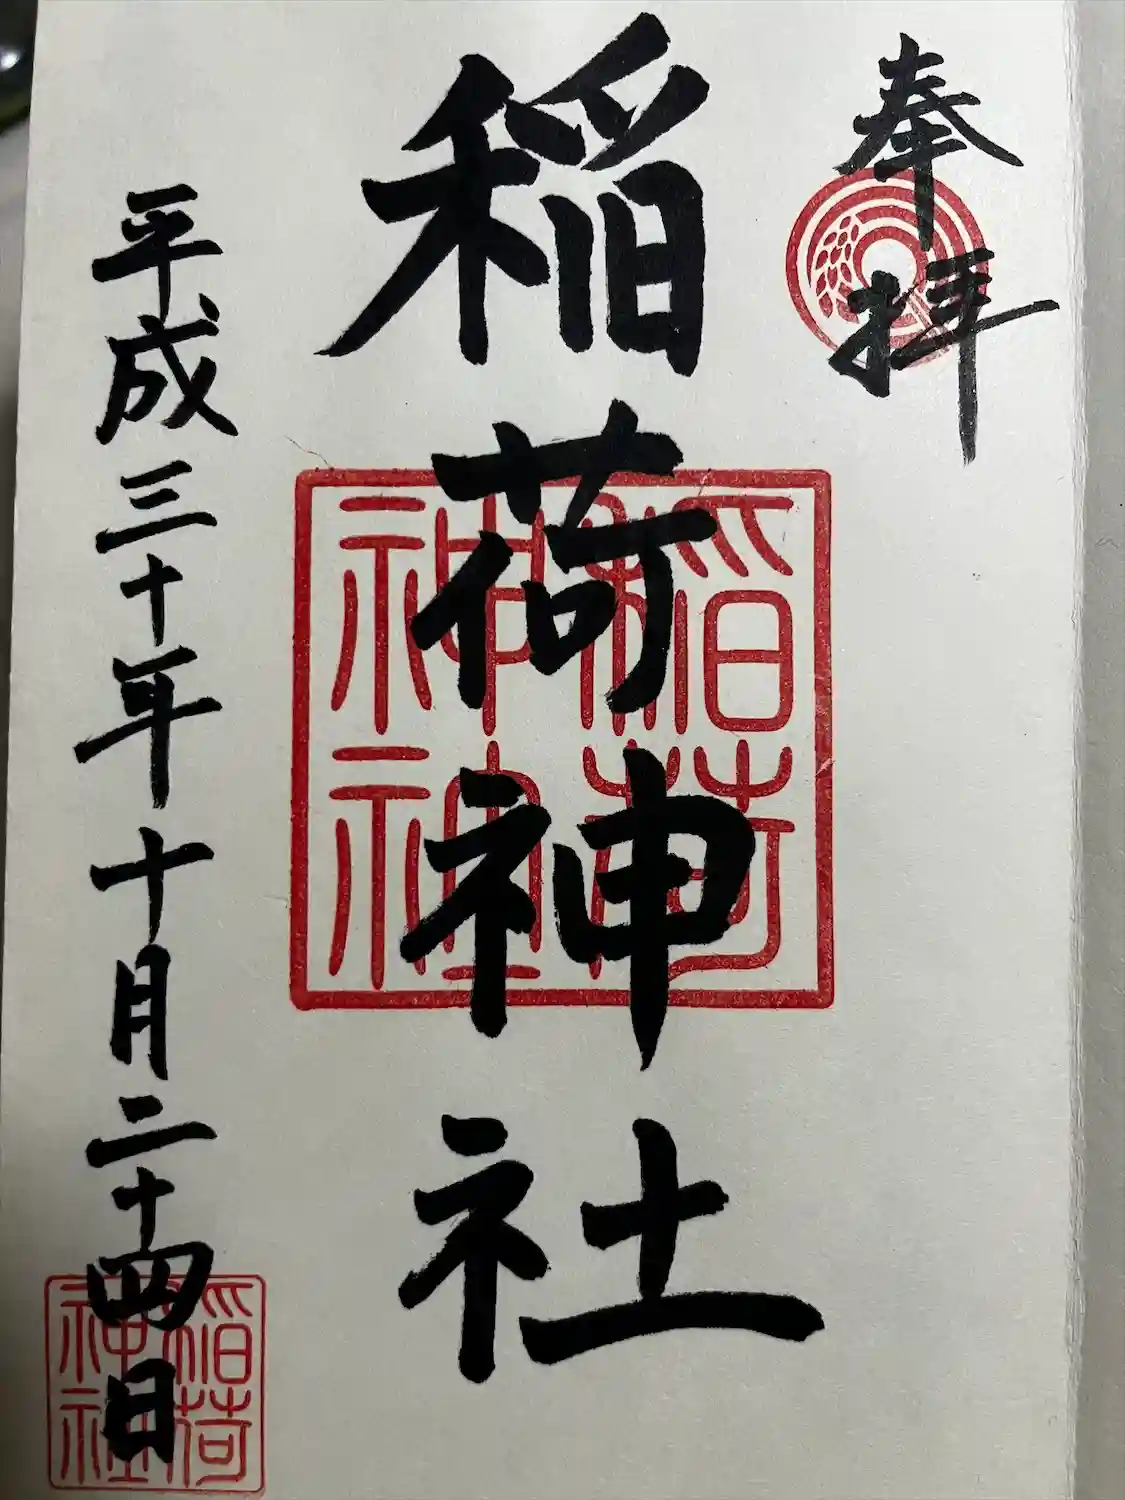 奉拝
稲荷神社
稲荷神社
平成三十年十月二十四日
稲荷神社